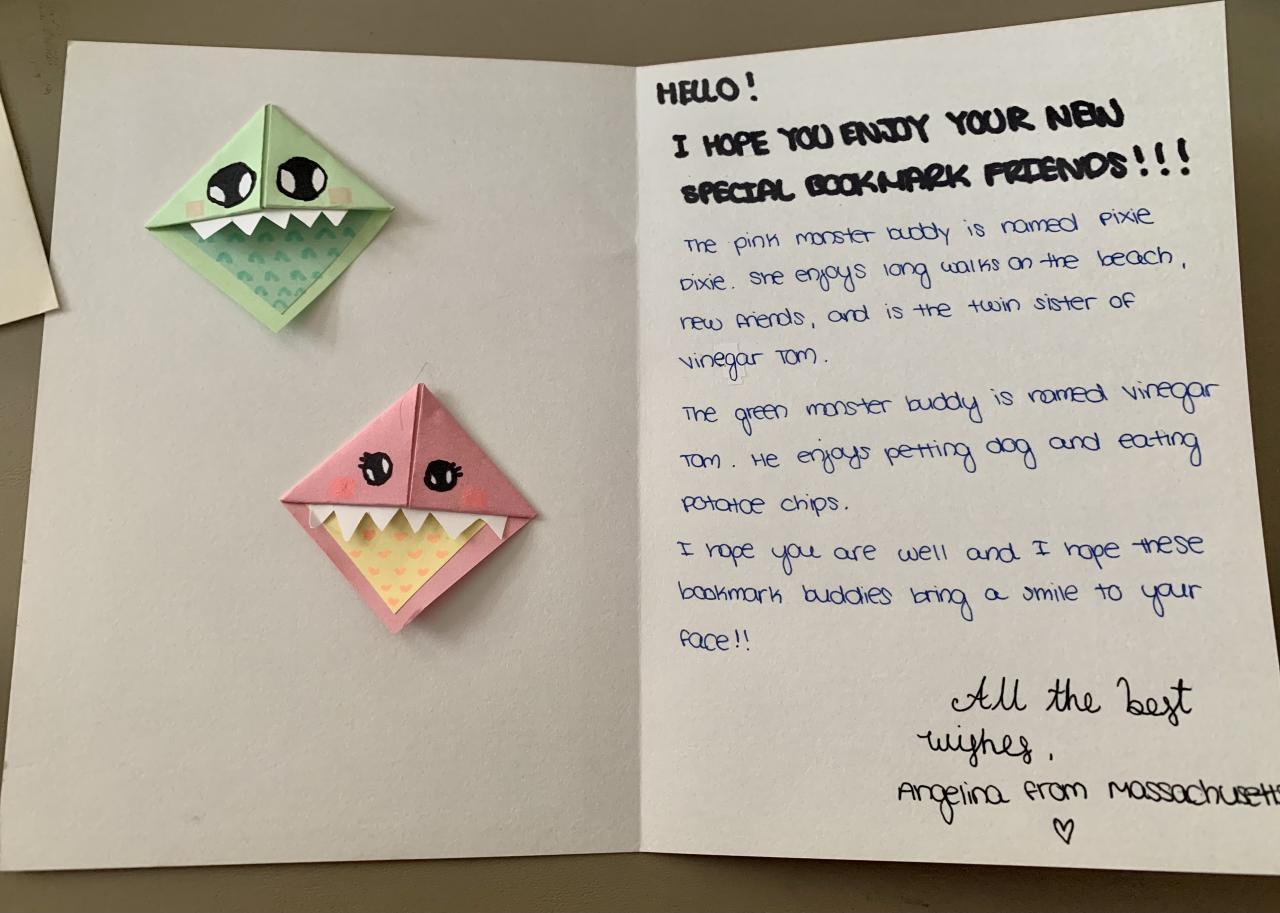 HELLO!
I HOPE YOU ENJOY YOUR NEW
SPECIAL BOOKMARK FRIENDS!!!
The pink monster buddy is named Pixie
Dixie. She enjoys long walks on the beach,
new friends, and is the twin sister of
Vinegar Tom.
The green monster buddy is named Vinegar
Tom. He enjoys petting dog and eating
potatoe chips.
I hope you are well and I hope these
bookmark buddies bring a smile to your
face!!
All the best
wishes,
Angelina from Massachusetts